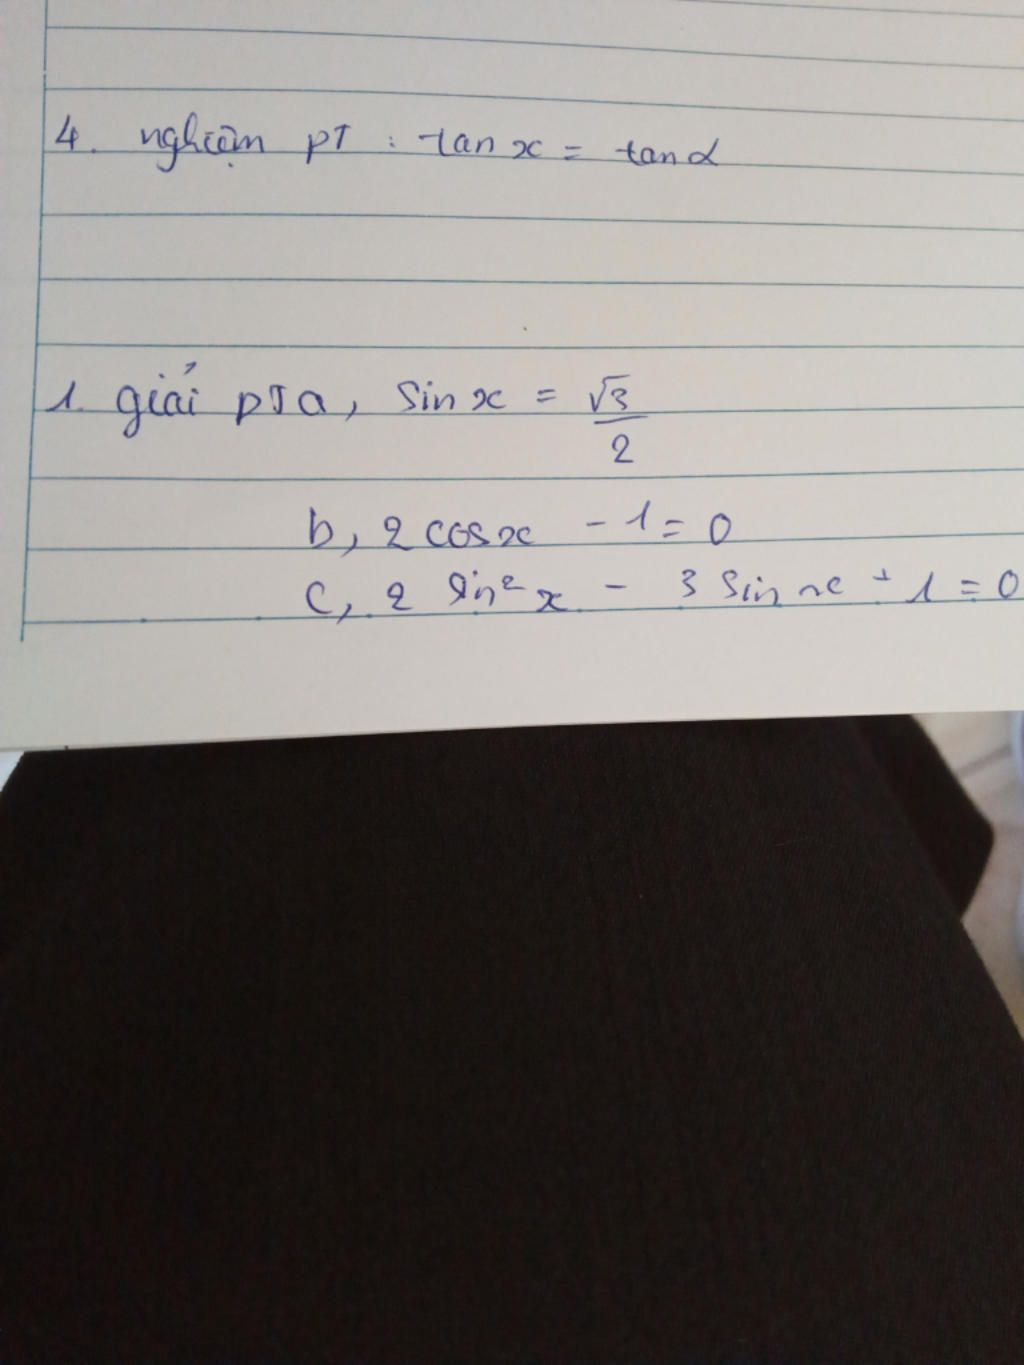 4. nghiệm pT : tan x = tan α
1. giải pT a, Sin x = √3/2
b, 2 cos x - 1 = 0
c, 2 sin² x - 3 Sin x + 1 = 0